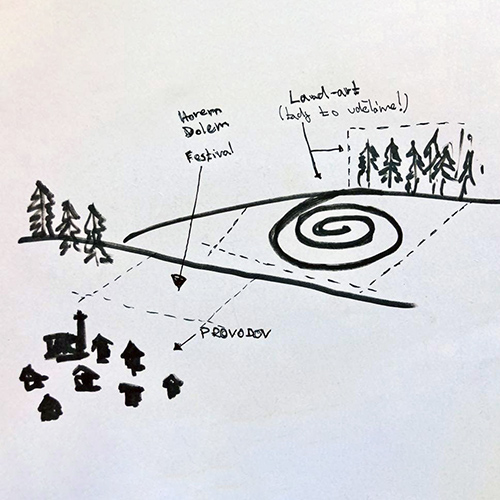 Horem
Dolem
Festival
Land-art
(tady to uděláme!)
PROVODOV